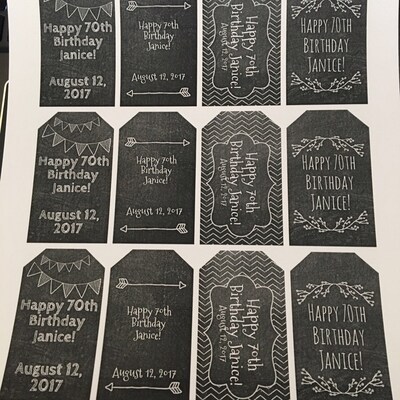 Happy 70th
Birthday
Janice!
August 12,
2017
Happy 70th
Birthday
Janice!
August 12, 2017
Happy 70th
Birthday Janice!
August 12, 2017
HAPPY 70TH
BIRTHDAY
JANICE!
Happy 70th
Birthday
Janice!
August 12,
2017
Happy 70th
Birthday
Janice!
August 12, 2017
Happy 70th
Birthday Janice!
August 12, 2017
HAPPY 70TH
BIRTHDAY
JANICE!
Happy 70th
Birthday
Janice!
August 12,
2017
Happy 70th
Birthday
Janice!
August 12, 2017
Happy 70th
Birthday Janice!
August 12, 2017
HAPPY 70TH
BIRTHDAY
JANICE!